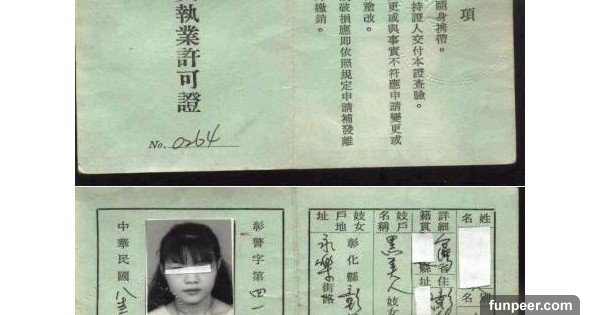 項
隨身携帶。
持證人交付本證查驗。
更或與事實不符應申請變更或
塗改。
破損應即依照規定申請補發離
繳銷。
執業許可證
No. 0264
姓名
詳細籍貫
台灣省
縣
住址
妓戶名稱
黑美人妓
妓女戶地址
彰化縣彰
永樂街路
彰警字第四一
中華民國
funpeer.com